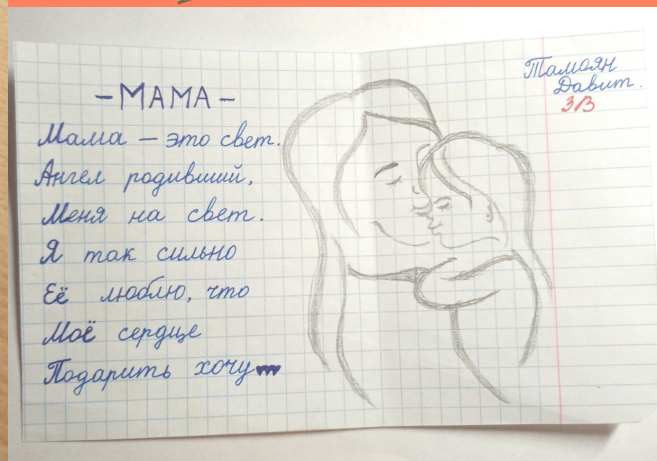 Тамоян
Давит.
3/В
-МАМА-
Мама – это свет.
Ангел родивший,
Меня на свет.
Я так сильно
Её люблю, что
Моё сердце
Подарить хочу